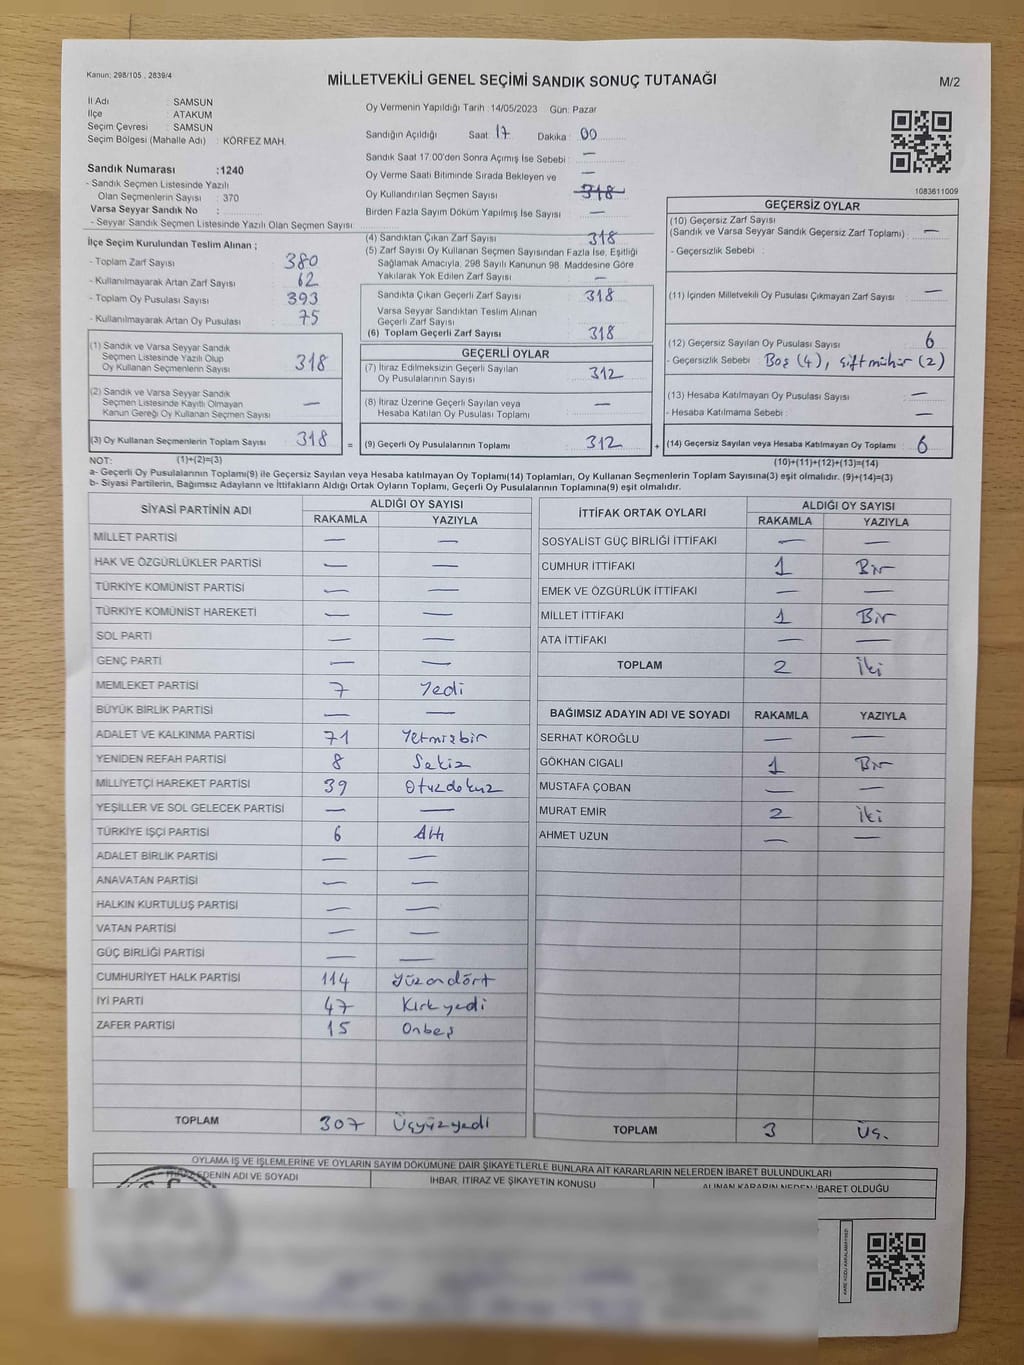 Kanun; 298/105 , 2839/4
MİLLETVEKİLİ GENEL SEÇİMİ SANDIK SONUÇ TUTANAĞI
M/2
İl Adı : SAMSUN
İlçe : ATAKUM
Seçim Çevresi : SAMSUN
Seçim Bölgesi (Mahalle Adı) : KÖRFEZ MAH.
Sandık Numarası :1240
- Sandık Seçmen Listesinde Yazılı
Olan Seçmenlerin Sayısı : 370
Varsa Seyyar Sandık No :
- Seyyar Sandık Seçmen Listesinde Yazılı Olan Seçmen Sayısı :
Oy Vermenin Yapıldığı Tarih :14/05/2023 Gün: Pazar
Sandığın Açıldığı Saat: 17 Dakika : 00
Sandık Saat 17.00'den Sonra Açımış İse Sebebi : —
Oy Verme Saati Bitiminde Sırada Bekleyen ve —
Oy Kullandırılan Seçmen Sayısı 318
Birden Fazla Sayım Döküm Yapılmış İse Sayısı —
1083611009
İlçe Seçim Kurulundan Teslim Alınan ;
- Toplam Zarf Sayısı 380
- Kullanılmayarak Artan Zarf Sayısı 62
- Toplam Oy Pusulası Sayısı 393
- Kullanılmayarak Artan Oy Pusulası 75
(1) Sandık ve Varsa Seyyar Sandık
Seçmen Listesinde Yazılı Olup
Oy Kullanan Seçmenlerin Sayısı 318
(2) Sandık ve Varsa Seyyar Sandık
Seçmen Listesinde Kayıtlı Olmayan
Kanun Gereği Oy Kullanan Seçmen Sayısı —
(3) Oy Kullanan Seçmenlerin Toplam Sayısı 318 =
(4) Sandıktan Çıkan Zarf Sayısı 318
(5) Zarf Sayısı Oy Kullanan Seçmen Sayısından Fazla İse, Eşitliği
Sağlamak Amacıyla, 298 Sayılı Kanunun 98. Maddesine Göre
Yakılarak Yok Edilen Zarf Sayısı —
Sandıkta Çıkan Geçerli Zarf Sayısı 318
Varsa Seyyar Sandıktan Teslim Alınan
Geçerli Zarf Sayısı
(6) Toplam Geçerli Zarf Sayısı 318
GEÇERLİ OYLAR
(7) İtiraz Edilmeksizin Geçerli Sayılan
Oy Pusulalarının Sayısı 312
(8) İtiraz Üzerine Geçerli Sayılan veya
Hesaba Katılan Oy Pusulası Toplamı —
(9) Geçerli Oy Pusulalarının Toplamı 312 +
GEÇERSİZ OYLAR
(10) Geçersiz Zarf Sayısı
(Sandık ve Varsa Seyyar Sandık Geçersiz Zarf Toplamı) : —
- Geçersizlik Sebebi :
(11) İçinden Milletvekili Oy Pusulası Çıkmayan Zarf Sayısı —
(12) Geçersiz Sayılan Oy Pusulası Sayısı 6
- Geçersizlik Sebebi Boş (4), çift mühür (2)
(13) Hesaba Katılmayan Oy Pusulası Sayısı —
- Hesaba Katılmama Sebebi : —
(14) Geçersiz Sayılan veya Hesaba Katılmayan Oy Toplamı : 6
NOT: (1)+(2)=(3)
(10)+(11)+(12)+(13)=(14)
a- Geçerli Oy Pusulalarının Toplamı(9) ile Geçersiz Sayılan veya Hesaba katılmayan Oy Toplamı(14) Toplamları, Oy Kullanan Seçmenlerin Toplam Sayısına(3) eşit olmalıdır. (9)+(14)=(3)
b- Siyasi Partilerin, Bağımsız Adayların ve İttifakların Aldığı Ortak Oyların Toplamı, Geçerli Oy Pusulalarının Toplamına(9) eşit olmalıdır.
SİYASİ PARTİNİN ADI ALDIĞI OY SAYISI
RAKAMLA YAZIYLA
MİLLET PARTİSİ — —
HAK VE ÖZGÜRLÜKLER PARTİSİ — —
TÜRKİYE KOMÜNİST PARTİSİ — —
TÜRKİYE KOMÜNİST HAREKETİ — —
SOL PARTİ — —
GENÇ PARTİ — —
MEMLEKET PARTİSİ 7 Yedi
BÜYÜK BİRLİK PARTİSİ — —
ADALET VE KALKINMA PARTİSİ 71 Yetmişbir
YENİDEN REFAH PARTİSİ 8 Sekiz
MİLLİYETÇİ HAREKET PARTİSİ 39 Otuzdokuz
YEŞİLLER VE SOL GELECEK PARTİSİ — —
TÜRKİYE İŞÇİ PARTİSİ 6 Altı
ADALET BİRLİK PARTİSİ — —
ANAVATAN PARTİSİ — —
HALKIN KURTULUŞ PARTİSİ — —
VATAN PARTİSİ — —
GÜÇ BİRLİĞİ PARTİSİ — —
CUMHURİYET HALK PARTİSİ 114 Yüzondört
İYİ PARTİ 47 Kırkyedi
ZAFER PARTİSİ 15 Onbeş
TOPLAM 307 Üçyüzyedi
İTTİFAK ORTAK OYLARI ALDIĞI OY SAYISI
RAKAMLA YAZIYLA
SOSYALİST GÜÇ BİRLİĞİ İTTİFAKI — —
CUMHUR İTTİFAKI 1 Bir
EMEK VE ÖZGÜRLÜK İTTİFAKI — —
MİLLET İTTİFAKI 1 Bir
ATA İTTİFAKI — —
TOPLAM 2 İki
BAĞIMSIZ ADAYIN ADI VE SOYADI RAKAMLA YAZIYLA
SERHAT KÖROĞLU — —
GÖKHAN CIGALI 1 Bir
MUSTAFA ÇOBAN — —
MURAT EMİR 2 İki
AHMET UZUN — —
TOPLAM 3 Üç.
OYLAMA İŞ VE İŞLEMLERİNE VE OYLARIN SAYIM DÖKÜMÜNE DAİR ŞİKAYETLERLE BUNLARA AİT KARARLARIN NELERDEN İBARET BULUNDUKLARI
EDENİN ADI VE SOYADI İHBAR, İTİRAZ VE ŞİKAYETİN KONUSU ALINAN KARARIN NEDEN İBARET OLDUĞU